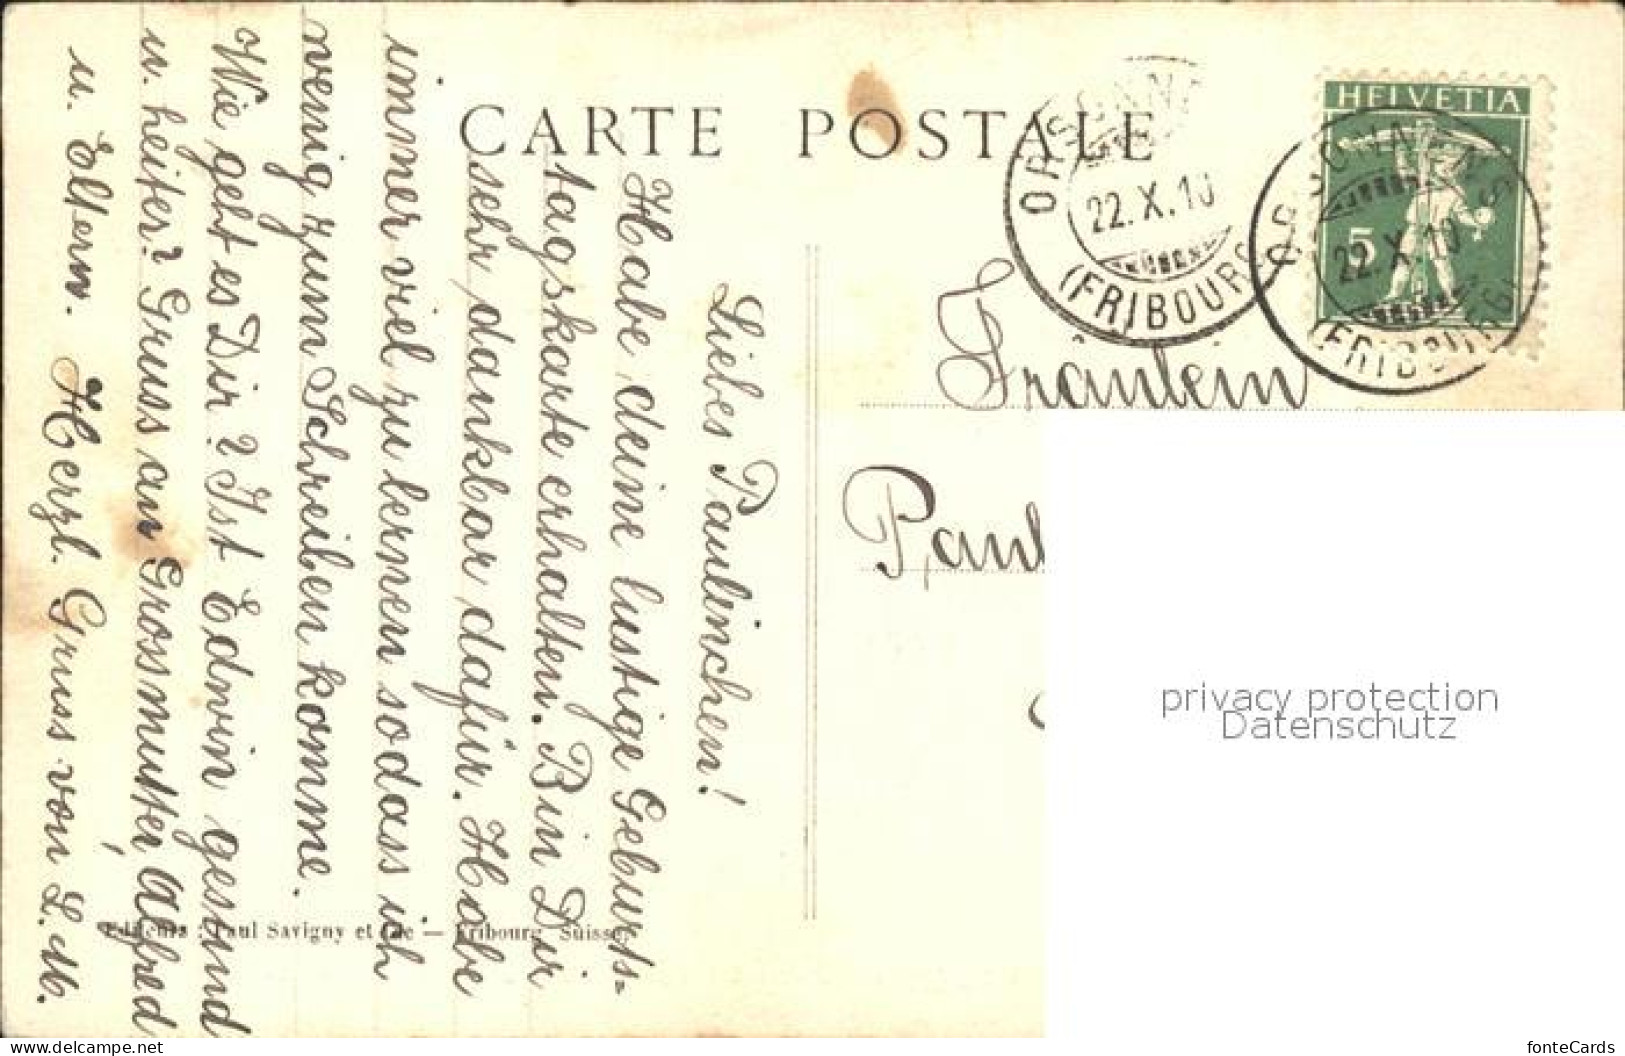 CARTE POSTALE
HELVETIA
5
ORSONNENS
22.X.10
(FRIBOURG)
ORSONNENS
22.X.10
(FRIBOURG)
Fräulein
Paul
privacy protection
Datenschutz
Liebes Paulinchen!
Habe deine lustige Geburts=
tagskarte erhalten. Bin Dir
sehr dankbar dafür. Habe
immer viel zu lernen sodass ich
wenig zum Schreiben komme.
Wie geht es Dir? Ist Edwin gesund
u. heiter? Gruss an Grossmutter, Alfred
u. Eltern. Herzl. Gruss von L. M.
Editeurs : Paul Savigny et Cie — Fribourg Suisse.
www.delcampe.net
Rita2510
fonteCards